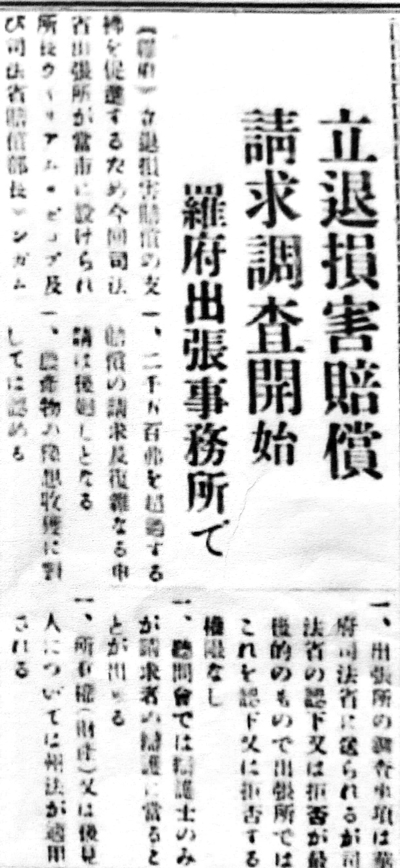 立退損害賠償
請求調査開始
羅府出張事務所で
【羅府】立退損害賠償の支
拂を促進するため今回司法
省出張所が當市に設けられ
所長ウイリアム・ビショプ及
び司法省賠償部長
一、二千五百弗を超過する
賠償の請求及複雑なる申
請は後廻しとなる
一、農産物の豫想収穫に對
しては認める
一、出張所の調査事項は華
府司法省に送られるが司
法省の認下又は拒否が最
後的のもので出張所では
これを認下又は拒否する
権限なし
一、聴問會では辯護士のみ
が請求者の辯護に當るこ
とが出来る
一、所有権(財産)又は後見
人については州法が適用
される